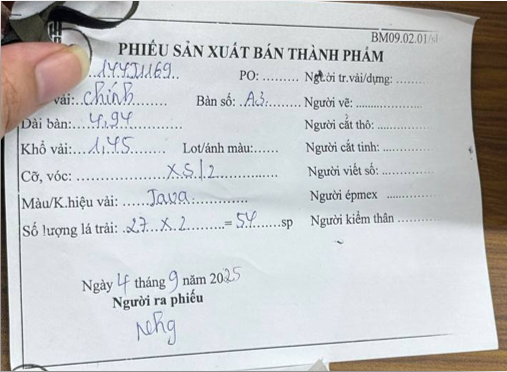 BM09.02.01/sl
PHIẾU SẢN XUẤT BÁN THÀNH PHẨM
144J1169 PO: ......... Người tr.vải/dựng: ........
vải: chính Bàn số: A3 Người vẽ: ........
Dài bàn: 4,94 Người cắt thô: ........
Khổ vải: 1,45 Lot/ánh màu: ....... Người cắt tinh: ........
Cỡ, vóc: XS/2 Người viết số: ........
Màu/K.hiệu vải: Java Người épmex ........
Số lượng lá trải: 27 x 2 = 54 sp Người kiểm thân ........
Ngày 4 tháng 9 năm 2025
Người ra phiếu